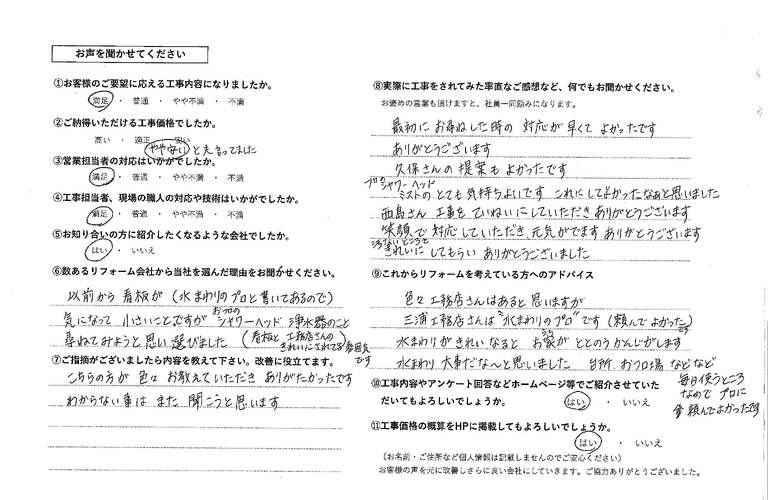 お声を聞かせてください
①お客様のご要望に応える工事内容になりましたか。
満足 ・ 普通 ・ やや不満 ・ 不満
②ご納得いただける工事価格でしたか。
高い ・ 適正 ・ 安い
やや安い と夫言ってました
③営業担当者の対応はいかがでしたか。
満足 ・ 普通 ・ やや不満 ・ 不満
④工事担当者、現場の職人の対応や技術はいかがでしたか。
満足 ・ 普通 ・ やや不満 ・ 不満
⑤お知り合いの方に紹介したくなるような会社でしたか。
はい ・ いいえ
⑥数あるリフォーム会社から当社を選んだ理由をお聞かせください。
以前から 看板が (水まわりのプロと書いてあるので)
気になって 小さいことですが おフロの シャワーヘッド 浄水器のこと
尋ねてみようと思い選びました (看板と 工務店さんの きれいにされてる)雰囲気です
⑦ご指摘がございましたら内容を教えて下さい。改善に役立てます。
こちらの方が 色々 お教えていただき ありがたかったです
わからない事は また 聞こうと思います
⑧実際に工事をされてみた率直なご感想など、何でもお聞かせください。
お褒めの言葉も頂けますと、社員一同励みになります。
最初に お尋ねした時の 対応が早くて よかったです
ありがとうございます
久保さんの 提案も よかったです
プロの シャワーヘッド
ミストの とても気持ちよいです これにしてよかったなぁと思いました
西島さん 工事も ていねいにしていただき ありがとうございます
笑顔で 対応していただき、元気がでます ありがとうございます
きれいに してもらい ありがとうございました
⑨これからリフォームを考えている方へのアドバイス
色々 工務店さんはあると 思いますが
三浦工務店さんは "水まわりのプロ" です (頼んで よかった)です
水まわりが きれいなると お家が ととのうかんじがします
水まわり 大事だな〜と思いました 台所 おフロ場 などなど
毎日使うところ
なので プロに
頼んでよかったです
⑩工事内容やアンケート回答などホームページ等でご紹介させていた
だいてもよろしいでしょうか。 はい ・ いいえ
⑪工事価格の概算をHPに掲載してもよろしいでしょうか。
はい ・ いいえ
(お名前・ご住所など個人情報は記載しませんのでご安心ください)
お客様の声を元に改善しさらに良い会社にしていきます。ご協力ありがとうございました。